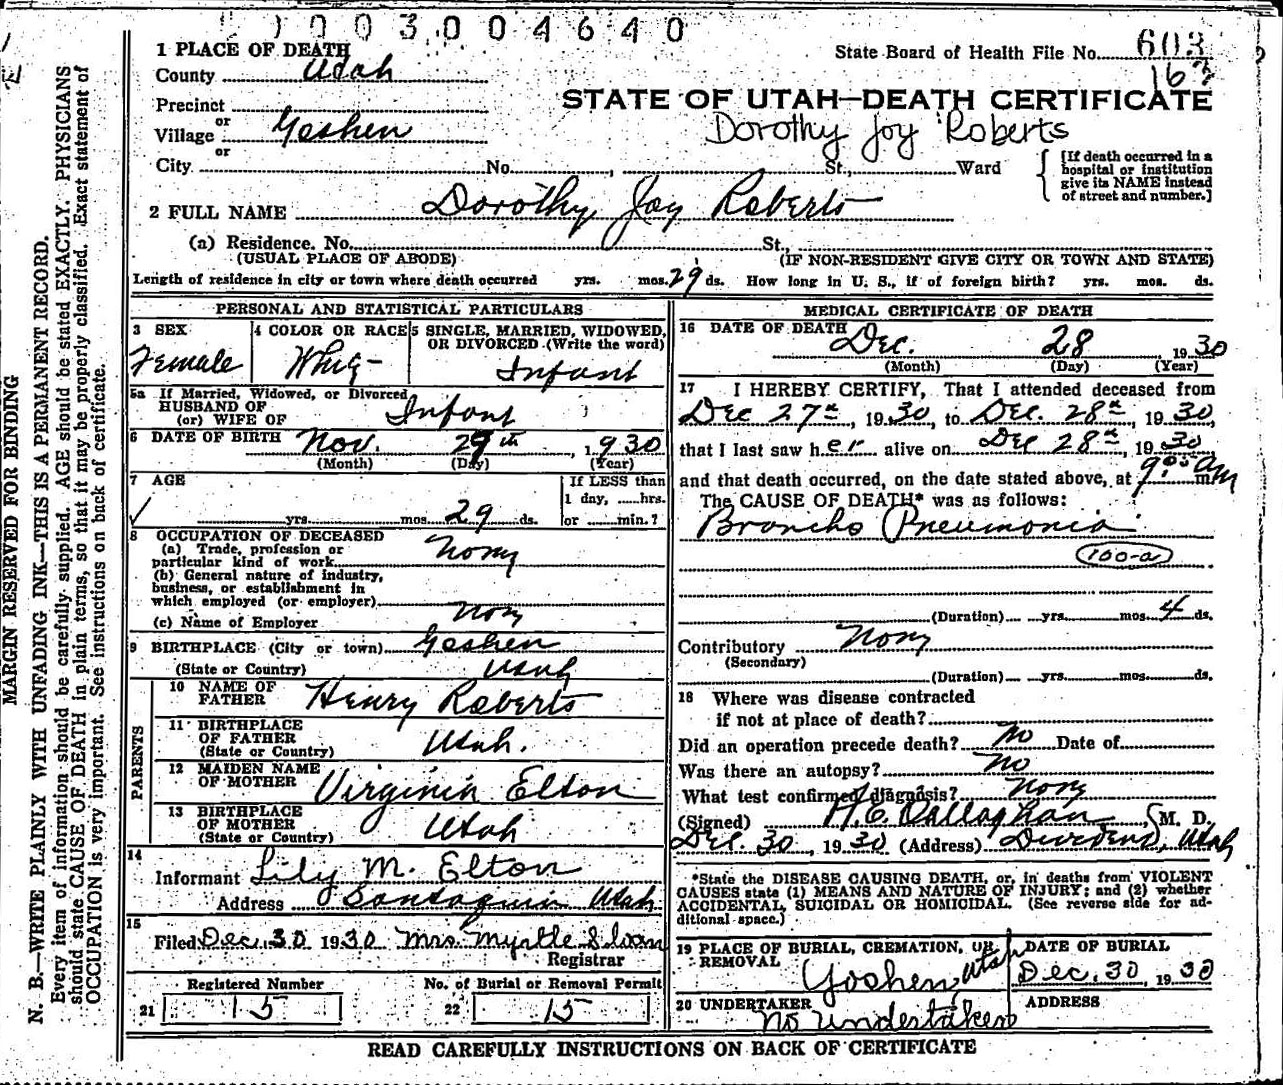 1003004640
1 PLACE OF DEATH
State Board of Health File No. 603
County Utah
163
Precinct
STATE OF UTAH—DEATH CERTIFICATE
or
Village Goshen
Dorothy Joy Roberts
or
City No. , St., Ward
[If death occurred in a
hospital or institution
give its NAME instead
of street and number.]
2 FULL NAME Dorothy Joy Roberts
(a) Residence. No. St.,
(USUAL PLACE OF ABODE) (IF NON-RESIDENT GIVE CITY OR TOWN AND STATE)
Length of residence in city or town where death occurred yrs. mos. 29 ds. How long in U. S., if of foreign birth? yrs. mos. ds.
PERSONAL AND STATISTICAL PARTICULARS
3 SEX 4 COLOR OR RACE 5 SINGLE, MARRIED, WIDOWED,
OR DIVORCED (Write the word)
Female White Infant
5a If Married, Widowed, or Divorced
HUSBAND OF
(or) WIFE OF Infant
6 DATE OF BIRTH Nov. 29th, 1930
(Month) (Day) (Year)
7 AGE If LESS than
1 day, hrs.
yrs. mos. 29 ds. or min.?
8 OCCUPATION OF DECEASED
(a) Trade, profession or
particular kind of work None
(b) General nature of industry,
business, or establishment in
which employed (or employer)
(c) Name of Employer None
9 BIRTHPLACE (City or town) Goshen
(State or Country) Utah
PARENTS
10 NAME OF
FATHER Henry Roberts
11 BIRTHPLACE
OF FATHER
(State or Country) Utah.
12 MAIDEN NAME
OF MOTHER Virginia Elton
13 BIRTHPLACE
OF MOTHER
(State or Country) Utah
14
Informant Lily M. Elton
Address Santaquin Utah
15
Filed Dec. 30 1930 Mrs Myrtle Sloan
Registrar
Registered Number No. of Burial or Removal Permit
21 15 22 15
MEDICAL CERTIFICATE OF DEATH
16 DATE OF DEATH Dec. 28, 1930
(Month) (Day) (Year)
17 I HEREBY CERTIFY, That I attended deceased from
Dec 27th, 1930, to Dec. 28th, 1930,
that I last saw her alive on Dec 28th, 1930
and that death occurred, on the date stated above, at 9:05 am m.
The CAUSE OF DEATH* was as follows:
Broncho Pneumonia
100-a
(Duration) yrs. mos. 4 ds.
Contributory None
(Secondary)
(Duration) yrs. mos. ds.
18 Where was disease contracted
if not at place of death?
Did an operation precede death? No Date of
Was there an autopsy? No
What test confirmed diagnosis? None
(Signed) H. C. Callaghan, M. D.
Dec. 30, 1930 (Address) Dividend, Utah
*State the DISEASE CAUSING DEATH, or, in deaths from VIOLENT
CAUSES state (1) MEANS AND NATURE OF INJURY; and (2) whether
ACCIDENTAL, SUICIDAL OR HOMICIDAL. (See reverse side for ad-
ditional space.)
19 PLACE OF BURIAL, CREMATION, OR DATE OF BURIAL
REMOVAL
Goshen, Utah Dec. 30, 1930
20 UNDERTAKER ADDRESS
No Undertaker
READ CAREFULLY INSTRUCTIONS ON BACK OF CERTIFICATE
MARGIN RESERVED FOR BINDING
N. B.—WRITE PLAINLY WITH UNFADING INK—THIS IS A PERMANENT RECORD.
Every item of information should be carefully supplied. AGE should be stated EXACTLY. PHYSICIANS
should state CAUSE OF DEATH in plain terms, so that it may be properly classified. Exact statement of
OCCUPATION is very important. See instructions on back of certificate.